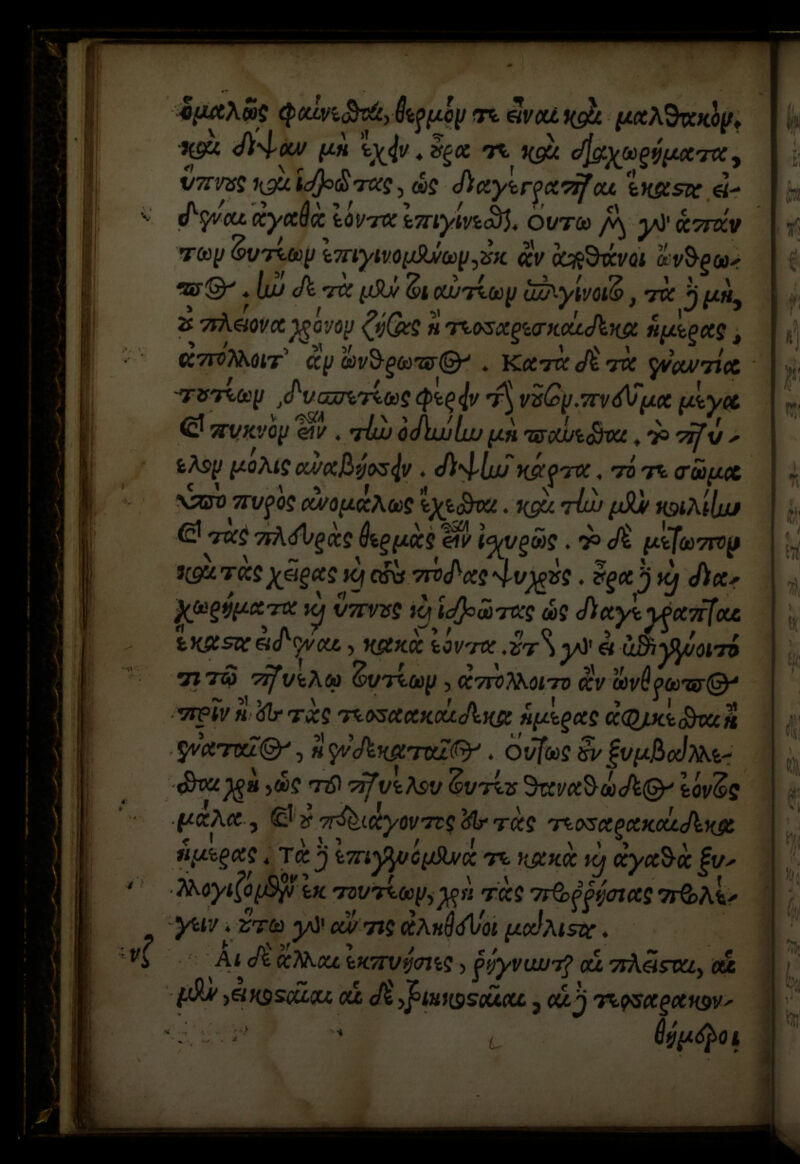 ὁμαλῶς φαίνεσθαι, θερμόν τε εἶναι καὶ μαλθακὸν,
καὶ δίψαν μὴ ἔχειν. οὖρα τε καὶ διαχωρήματα,
ὕπνους καὶ ἱδρῶτας, ὡς διαγέγραπται ἕκαστα εἰ-
δέναι ἀγαθὰ ἐόντα ἐπιγίνεσθαι. οὕτω μὲν γὰρ ἁπάν
των τουτέων ἐπιγινομένων, οὐκ ἂν ἀποθάνοι ἄνθρω-
πος. ἢν δὲ τὰ μὲν τοι αὐτέων ἀπογίνοιτο, τὰ δὲ μὴ,
οὐ πλείονα χρόνον ζήσας ἢ τεσσαρεσκαίδεκα ἡμέρας,
ἀπόλλοιτ' ἂν ὥνθρωπος. Κατὰ δὲ τὰ ἐναντία
τουτέων, δυσπετέως φέρειν τὴν νοῦσον. πνεῦμα μέγα
καὶ πυκνὸν ἐὸν. τὴν ὀδύνην μὴ παύεσθαι, τὸ πτύ-
ελον μόλις ἀναβήσσειν. διψῆν κάρτα. τό τε σῶμα
ὑπὸ πυρὸς ἀνομάλως ἔχεσθαι. καὶ τὴν μὲν κοιλίην
καὶ τὰς πλευρὰς θερμὰς ἐὸν ἰσχυρῶς. τὸ δὲ μέτωπον
καὶ τὰς χεῖρας καὶ τοὺς πόδας ψυχρούς. οὖρα δὲ καὶ δια-
χωρήματα καὶ ὕπνους καὶ ἱδρῶτας ὡς διαγέγραπται
ἕκαστα εἰδέναι, κακὰ ἐόντα. οὕτω γὰρ εἰ ἐπιγένοιτό
τι τῷ πτυέλῳ τουτέων, ἀπόλλοιτο ἂν ὥνθρωπος
πρὶν ἢ ἐς τὰς τεσσαρακαίδεκα ἡμέρας ἀφικέσθαι ἢ
ἐναταῖος, ἢ ἑνδεκαταῖος. Οὕτως οὖν ξυμβάλλε-
σθαι χρὴ, ὡς τοῦ πτυέλου τουτέου θανατώδεος ἐόντος
μάλα, καὶ οὐ περιάγοντος ἐς τὰς τεσσαρακαίδεκα
ἡμέρας. Τὰ δὲ ἐπιγενόμενά τε κακὰ καὶ ἀγαθὰ ξυ-
λλογιζόμενον ἐκ τουτέων, χρὴ τὰς προῤῥήσιας προλέ-
γειν. οὕτω γὰρ ἄν τις ἀληθεύοι μάλιστα.
νζ Αἱ δὲ ἄλλαι ἐκπυήσιες, ῥήγνυνται αἱ πλεῖσται, αἱ
μὲν, εἰκοσταῖαι αἱ δὲ, τριηκοσταῖαι, αἱ δὲ τεσσαρακον-
θήμεροι